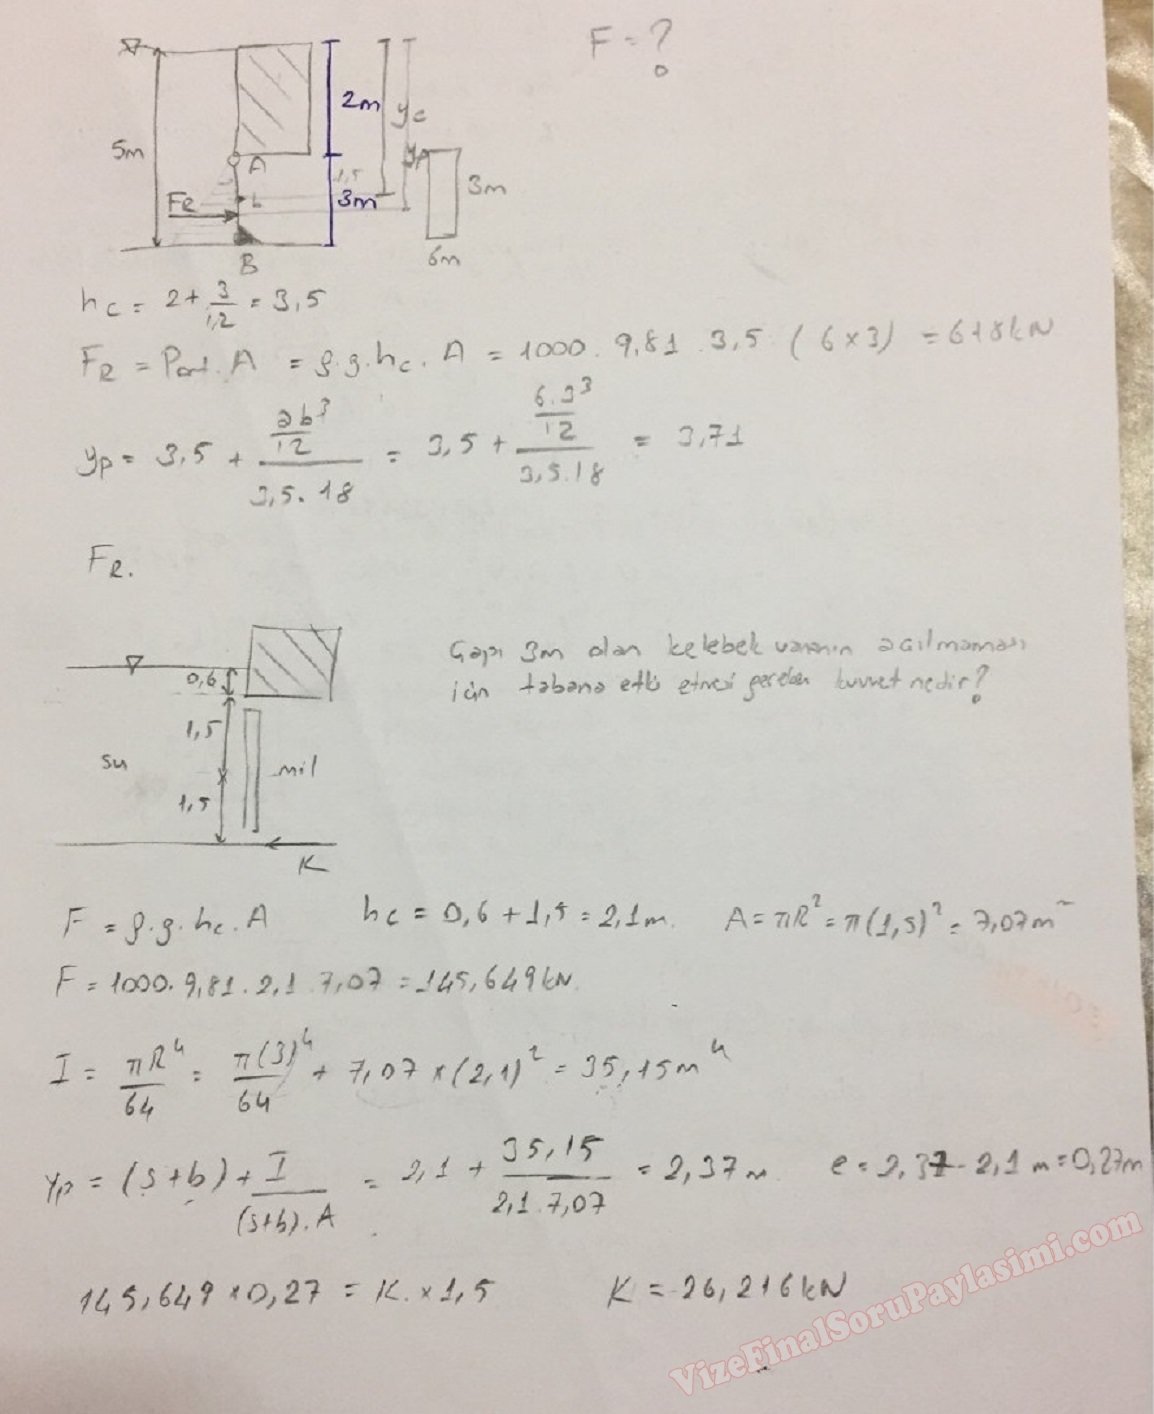 F = ?
2m
yc
5m
A
yp
1,5
3m
3m
FR
B
6m
hc = 2 + 3/1,2 = 3,5
FR = Port. A = ρ.g.hc. A = 1000. 9,81 .3,5. (6x3) = 618kN
yp = 3,5 + (ab³/12)/(3,5. 18) = 3,5 + (6.3³/12)/(3,5.18) = 3,71
FR.
0,6
1,5
su
mil
1,5
K
Çapı 3m olan kelebek vananın açılmaması
için tabana etki etmesi gereken kuvvet nedir?
F = ρ.g.hc.A hc = 0,6 + 1,5 = 2,1m. A = πR² = π(1,5)² = 7,07m²
F = 1000. 9,81. 2,1. 7,07 = 145,649kN.
I = πR⁴/64 = π(3)⁴/64 + 7,07 x (2,1)² = 35,15m⁴
yp = (s+b) + I/((s+b).A) = 2,1 + 35,15/(2,1.7,07) = 2,37m e = 2,37 - 2,1m = 0,27m
145,649 x 0,27 = K. x 1,5 K = 26,216kN
VizeFinalSoruPaylasimi.com